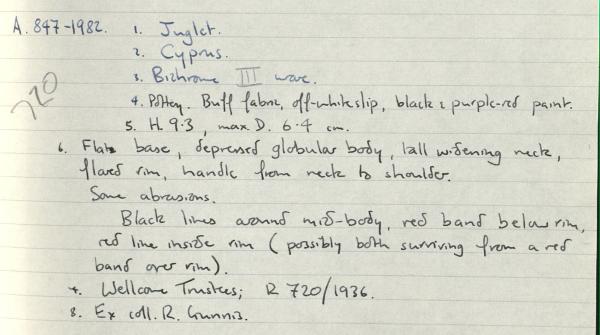 A. 847-1982. 1. Juglet.
2. Cyprus.
720
3. Bichrome III ware.
4. Pottery. Buff fabric, off-white slip, black & purple-red paint.
5. H. 9.3, max D. 6.4 cm.
6. Flat base, depressed globular body, tall widening neck,
flared rim, handle from neck to shoulder.
Some abrasions.
Black lines around mid-body, red band below rim,
red line inside rim (possibly both surviving from a red
band over rim).
7. Wellcome Trustees; R 720/1936.
8. Ex coll. R. Gunnis.